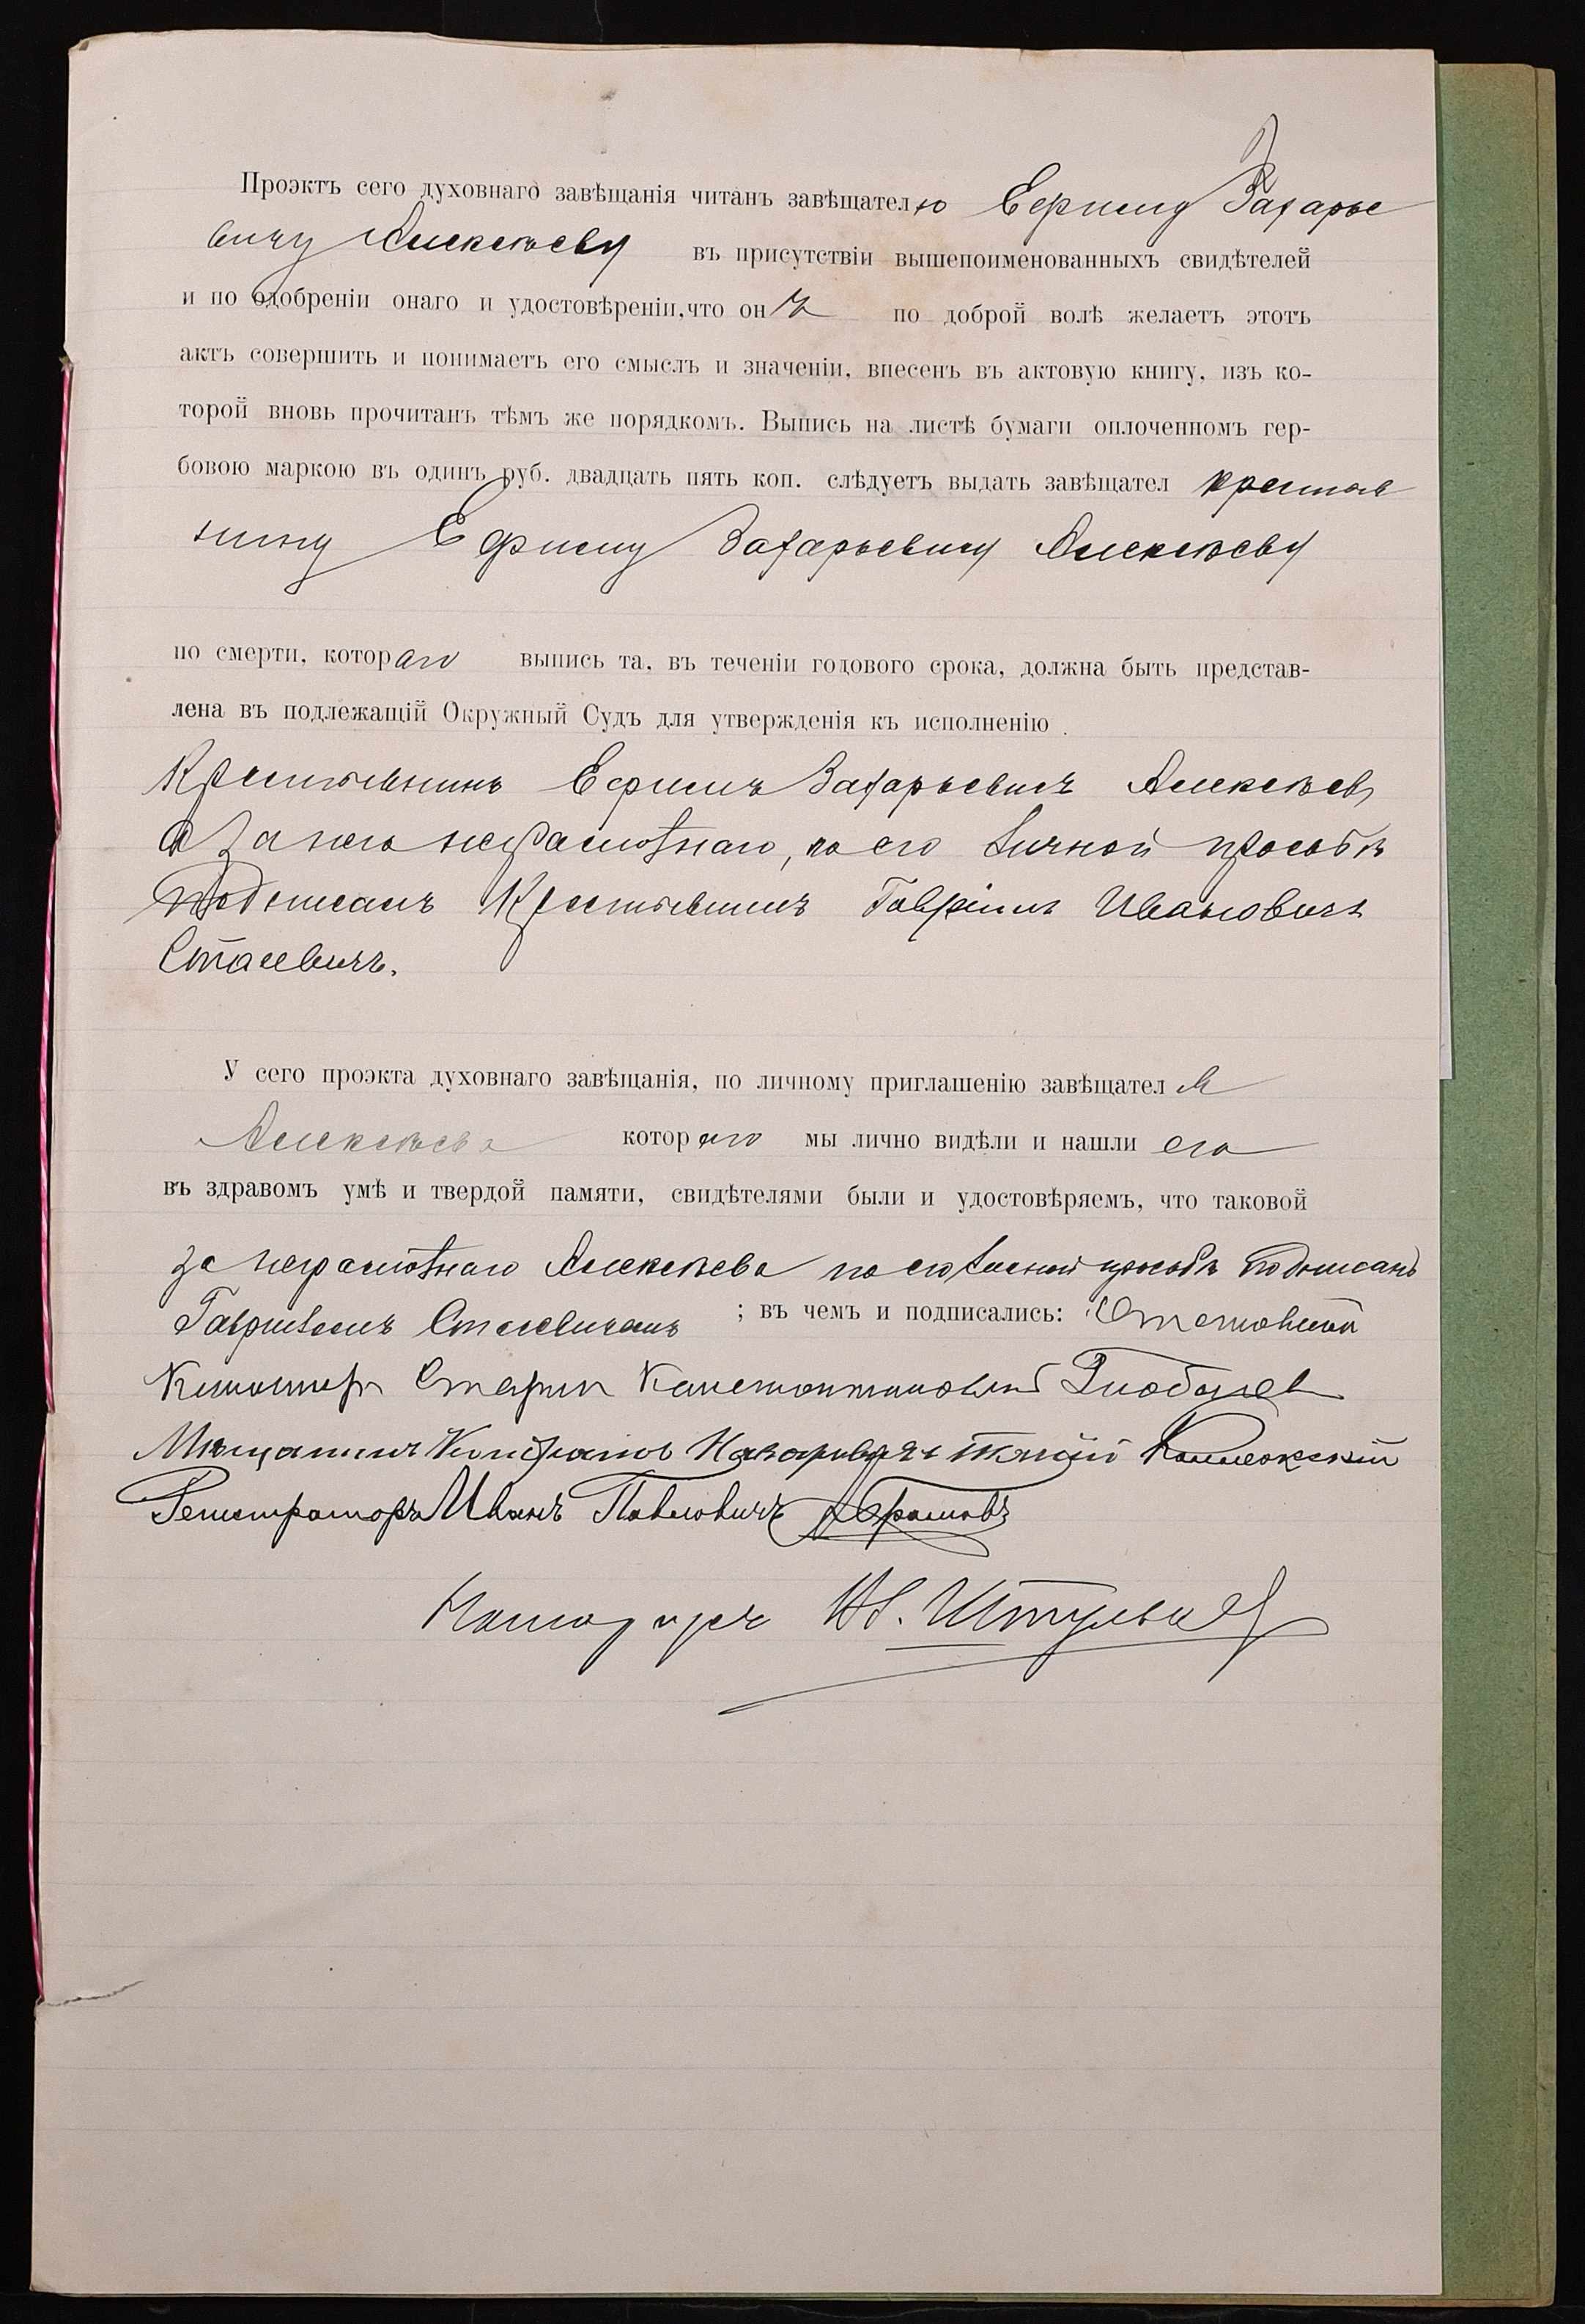 Проэктъ сего духовнаго завѣщанія читанъ завѣщателю Ефиму Захарье
вичу Алексѣеву въ присутствіи вышепоименованныхъ свидѣтелей
и по одобреніи онаго и удостовѣреніи, что онъ по доброй волѣ желаетъ этотъ
актъ совершить и понимаетъ его смыслъ и значеніи, внесенъ въ актовую книгу, изъ ко-
торой вновь прочитанъ тѣмъ же порядкомъ. Выпись на листѣ бумаги оплоченномъ гер-
бовою маркою въ одинъ руб. двадцать пять коп. слѣдуетъ выдать завѣщател крестья
нину Ефиму Захарьевичу Алексѣеву
по смерти, котораго выпись та, въ теченіи годового срока, должна быть представ-
лена въ подлежащій Окружный Судъ для утвержденія къ исполненію.
Крестьянинъ Ефимъ Захарьевичъ Алексѣевъ
а за него неграмотнаго, по его личной просьбѣ
подписалъ Крестьянинъ Гавріилъ Ивановичъ
Стасевичъ.
У сего проэкта духовнаго завѣщанія, по личному приглашенію завѣщателя
Алексѣева котораго мы лично видѣли и нашли его
въ здравомъ умѣ и твердой памяти, свидѣтелями были и удостовѣряемъ, что таковой
за неграмотнаго Алексѣева по его личной просьбѣ подписанъ
Гавріиломъ Стасевичемъ ; въ чемъ и подписались:
Константиновъ
Мѣщанинъ Назаровичъ Коллежскій
Регистраторъ Иванъ Павловичъ Абрамовъ
Нотаріусъ